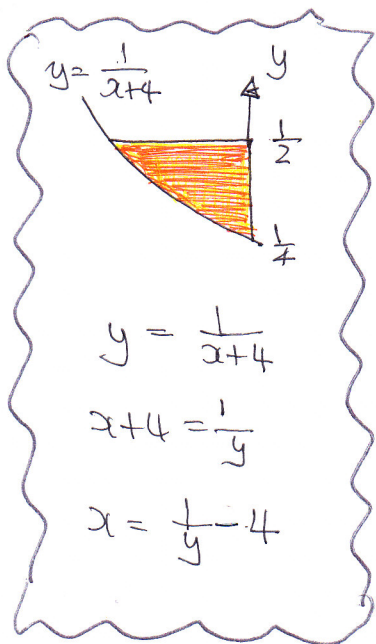 y = 1/(x+4)
y
1/2
1/4
y = 1/(x+4)
x+4 = 1/y
x = 1/y - 4